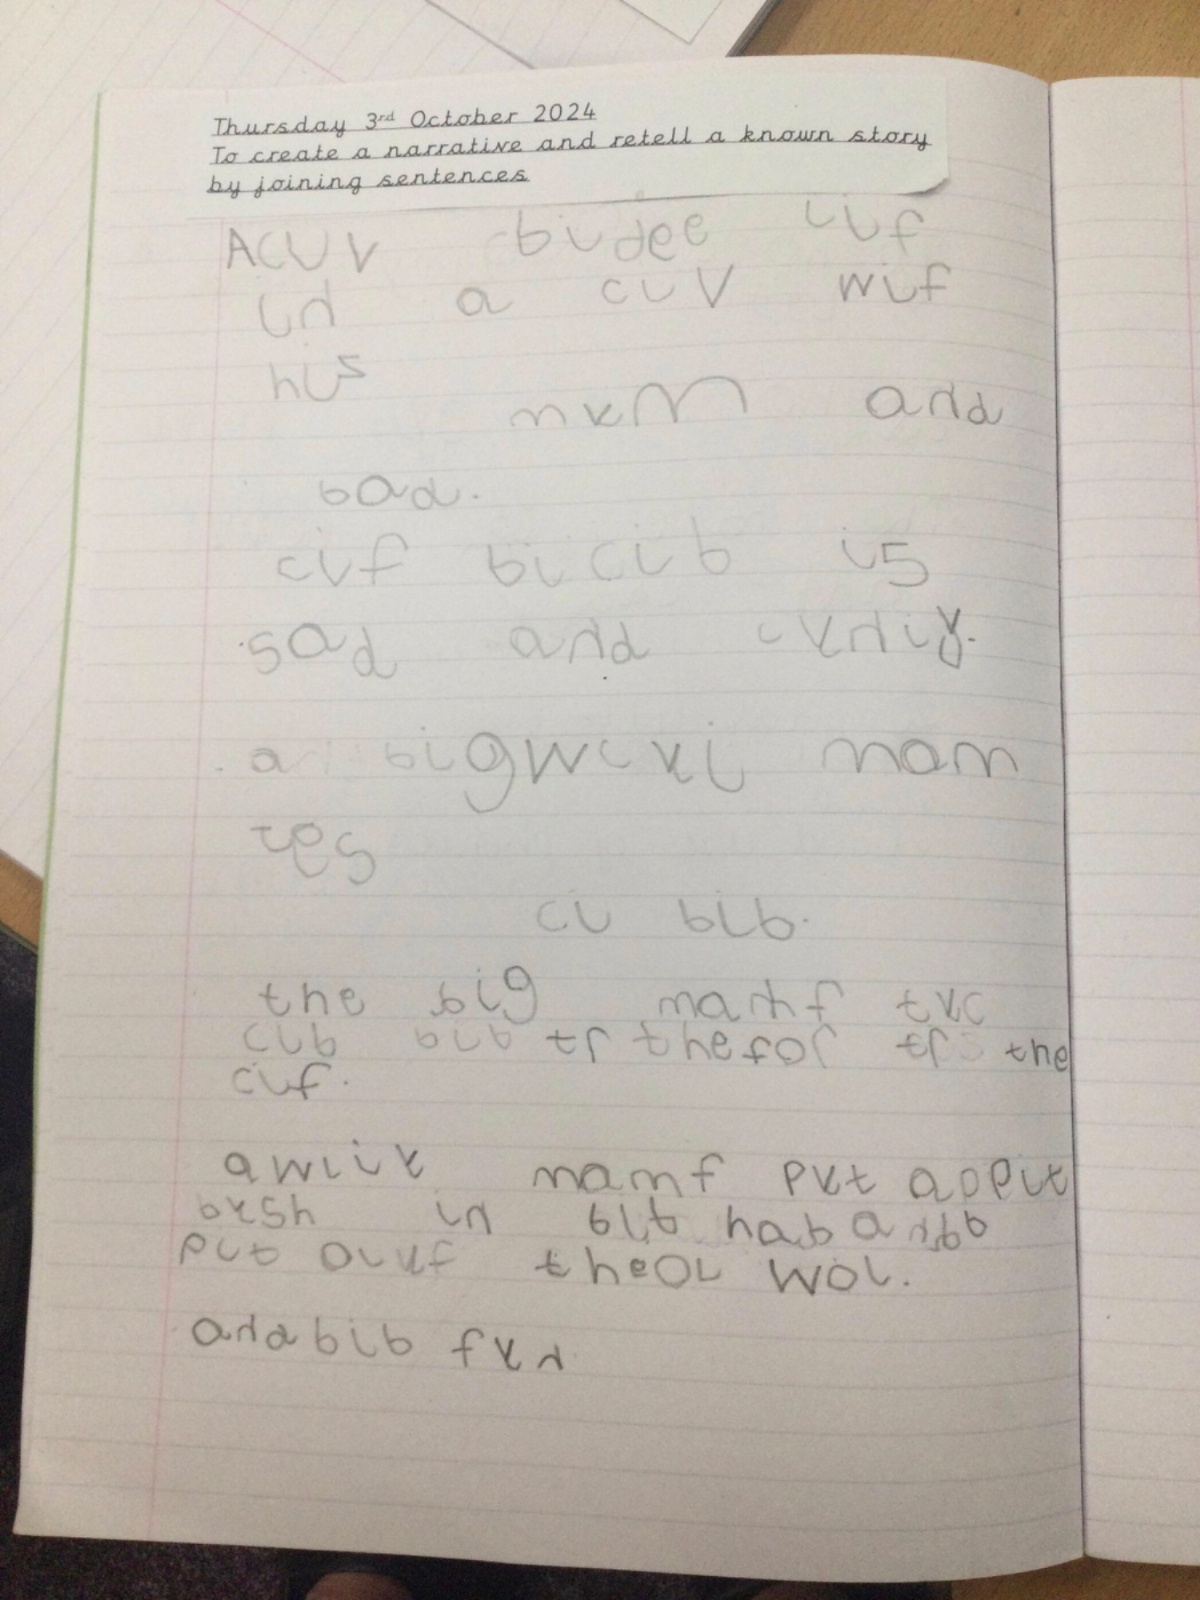 Thursday 3rd October 2024
To create a narrative and retell a known story
by joining sentences
ACUV budee iuf
in a cuv wif
hus
mum and
bad.
cif bicib is
sad and
a bigwcki mam
tes
ci bib.
the big mamf tkc
cib bib tr thefor the
cif.
awiik mamf Pkt appit
bksh in bib hab andd
Put oukf theor wor.
and bib fkn